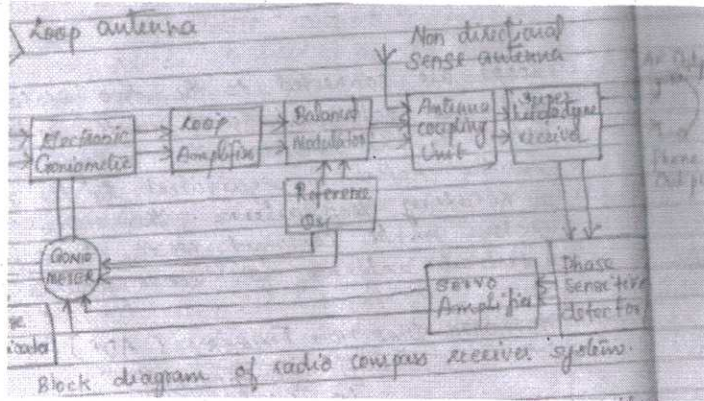 Loop antenna
Non directional
sense antenna
Electronic
Goniometer
Loop
Amplifier
Balanced
Modulator
Antenna
coupling
Unit
Super
heterodyne
receiver
Reference
GONIO
METER
Servo
Amplifier
Phase
Sensitive
detector
Phone
Block diagram of radio compass receiver system.